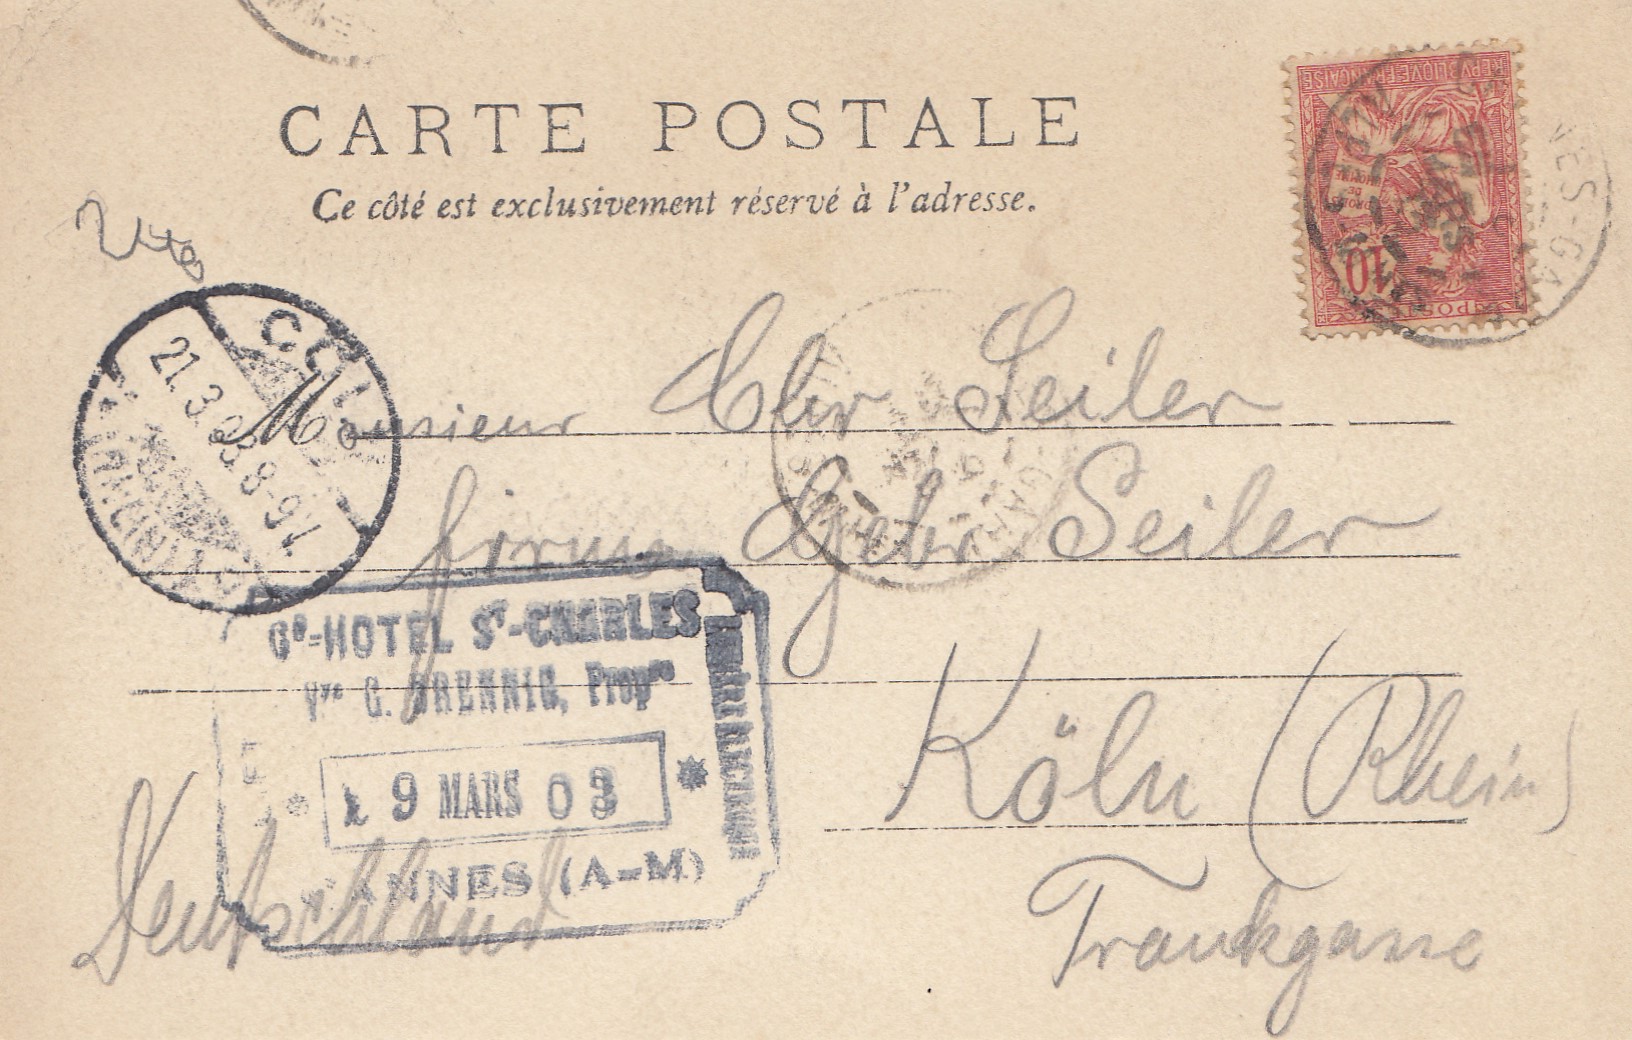 CARTE POSTALE
Ce côté est exclusivement réservé à l'adresse.
REPVBLIQVE FRANÇAISE
10
POSTES
21.3.03. 8-9V.
Monsieur Chr Seiler
firma Gebr Seiler
Gd-HOTEL St-CHARLES
Vve G. BRENNIG, Propre
LUMIÈRE ÉLECTRIQUE
Köln (Rhein)
19 MARS 03
CANNES (A-M)
Deutschland
Trankgasse